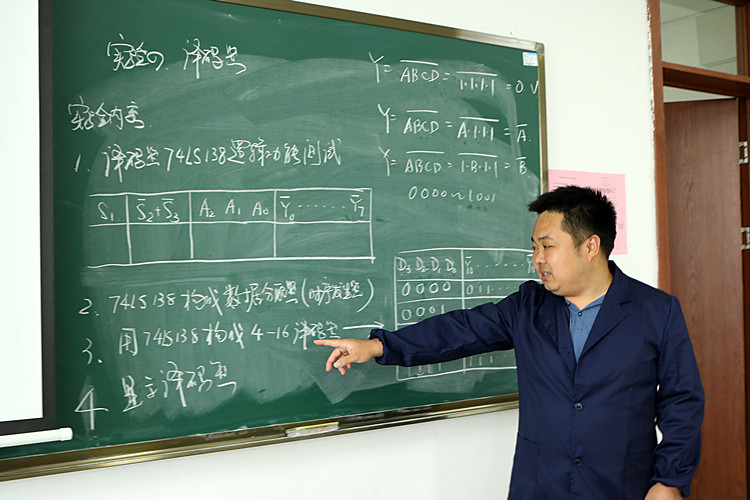 实验四、译码器
实验内容
1、译码器74LS138逻辑功能测试
S₁ S̄₂+S̄₃ A₂ A₁ A₀ Ȳ₀ ······ Ȳ₇
2、74LS138构成数据分配器(时序发生器)
3、用74LS138构成4-16译码器
4 显示译码器
Y = \overline{ABCD} = \overline{1·1·1·1} = 0 V
Y = \overline{ABCD} = \overline{A·1·1·1} = Ā
Y = \overline{ABCD} = \overline{1·B·1·1} = B̄
0000~1001
D₃ D₂ D₁ D₀ Ȳ₀ ······
0000 011
0001